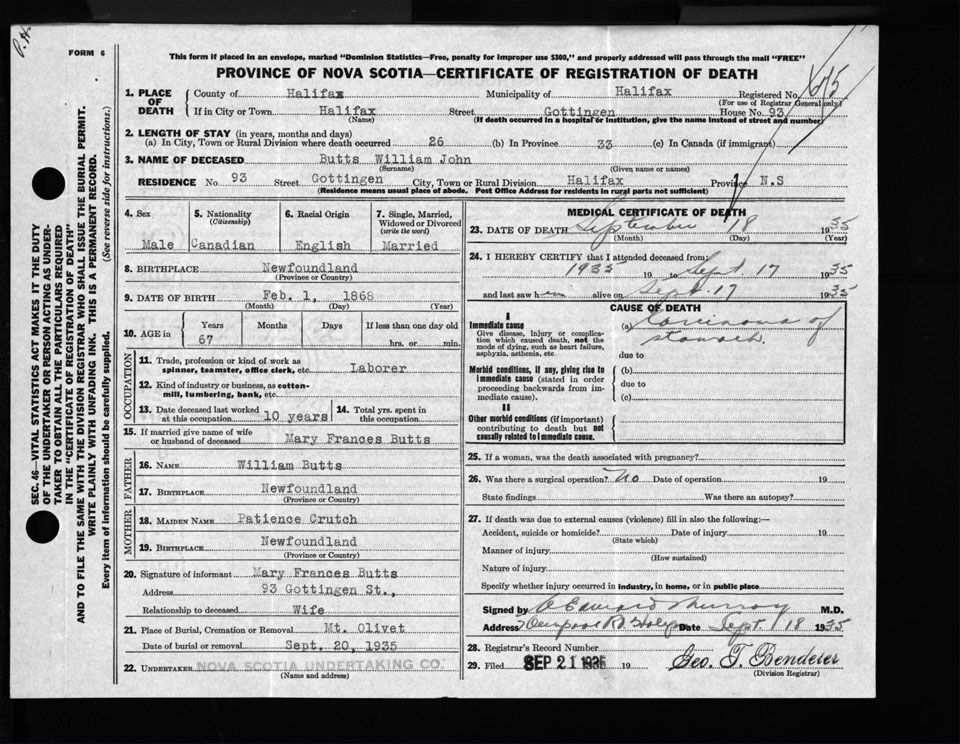 P.H.
FORM 6
This form if placed in an envelope, marked "Dominion Statistics—Free, penalty for improper use $300," and properly addressed will pass through the mail "FREE"
PROVINCE OF NOVA SCOTIA—CERTIFICATE OF REGISTRATION OF DEATH
1. PLACE OF DEATH
County of Halifax Municipality of Halifax Registered No.
(For use of Registrar General only.)
If in City or Town Halifax Street Gottingen House No. 93
(Name) (If death occurred in a hospital or institution, give the name instead of street and number)
2. LENGTH OF STAY (in years, months and days)
(a) In City, Town or Rural Division where death occurred 26 (b) In Province 33 (c) In Canada (if immigrant)
3. NAME OF DECEASED Butts William John
(Surname) (Given name or names)
RESIDENCE No. 93 Street Gottingen City, Town or Rural Division Halifax Province N.S
(Residence means usual place of abode. Post Office Address for residents in rural parts not sufficient)
4. Sex Male
5. Nationality (Citizenship) Canadian
6. Racial Origin English
7. Single, Married, Widowed or Divorced (write the word) Married
8. BIRTHPLACE Newfoundland
(Province or Country)
9. DATE OF BIRTH Feb. 1, 1868
(Month) (Day) (Year)
10. AGE in Years Months Days If less than one day old
67 hrs. or min.
OCCUPATION
11. Trade, profession or kind of work as spinner, teamster, office clerk, etc. Laborer
12. Kind of industry or business, as cotton-mill, lumbering, bank, etc.
13. Date deceased last worked at this occupation 10 years
14. Total yrs. spent in this occupation
15. If married give name of wife or husband of deceased Mary Frances Butts
FATHER
16. NAME William Butts
17. BIRTHPLACE Newfoundland
(Province or Country)
MOTHER
18. MAIDEN NAME Patience Crutch
19. BIRTHPLACE Newfoundland
(Province or Country)
20. Signature of informant Mary Frances Butts
Address 93 Gottingen St.,
Relationship to deceased Wife
21. Place of Burial, Cremation or Removal Mt. Olivet
Date of burial or removal Sept. 20, 1935
22. UNDERTAKER NOVA SCOTIA UNDERTAKING CO.
(Name and address)
MEDICAL CERTIFICATE OF DEATH
23. DATE OF DEATH September 18 1935
(Month) (Day) (Year)
24. I HEREBY CERTIFY that I attended deceased from:
1935 19 to Sept. 17 1935
and last saw him alive on Sept. 17 1935
CAUSE OF DEATH
I
Immediate cause
Give disease, injury or complication which caused death, not the mode of dying, such as heart failure, asphyxia, asthenia, etc.
(a) Carcinoma of stomach.
due to
Morbid conditions, if any, giving rise to immediate cause (stated in order proceeding backwards from immediate cause).
(b)
due to
(c)
II
Other morbid conditions (if important) contributing to death but not causally related to immediate cause.
25. If a woman, was the death associated with pregnancy?
26. Was there a surgical operation? No Date of operation 19
State findings Was there an autopsy?
27. If death was due to external causes (violence) fill in also the following:—
Accident, suicide or homicide? Date of injury 19
(State which)
Manner of injury
(How sustained)
Nature of injury
Specify whether injury occurred in industry, in home, or in public place
Signed by Edward Murray M.D.
Address Date Sept. 18 1935
28. Registrar's Record Number
29. Filed SEP 21 1935 19 Geo. T. Bendeier
(Division Registrar)
SEC. 46—VITAL STATISTICS ACT MAKES IT THE DUTY
OF THE UNDERTAKER OR PERSON ACTING AS UNDER-
TAKER TO OBTAIN ALL THE PARTICULARS REQUIRED
IN THE "CERTIFICATE OF REGISTRATION OF DEATH"
AND TO FILE THE SAME WITH THE DIVISION REGISTRAR WHO SHALL ISSUE THE BURIAL PERMIT.
WRITE PLAINLY WITH UNFADING INK. THIS IS A PERMANENT RECORD.
Every item of information should be carefully supplied. (See reverse side for instructions.)